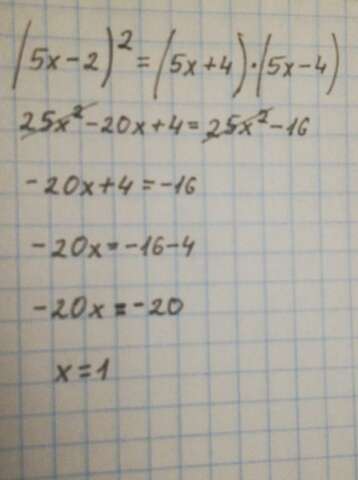 (5x-2)²=(5x+4)·(5x-4)
25x²-20x+4=25x²-16
-20x+4=-16
-20x=-16-4
-20x=-20
x=1